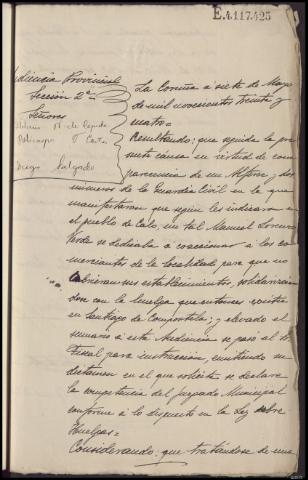 E.4.117.425
Audiencia Provincial
Sección 2ª
Señores
de Cepeda
Policarpo F. Costas
Diego Salgado
La Coruña á siete de Mayo
de mil novecientos treinta y
cuatro=
Resultando: que seguida la pre-
sente causa en virtud de com-
parecencia de un Alférez y dos
números de la Guardia Civil en la que
manifestaron que según les indicaron en
el pueblo de Calo, un tal Manuel Lorenzo
se dedicaba á coaccionar á los co-
merciantes de la localidad para que no
abrieran sus establecimientos, solidarizán-
dose con la huelga que entonces existía
en Santiago de Compostela; y elevado el
sumario á esta Audiencia se pasó al Sr.
Fiscal para instrucción, emitiendo su
dictamen en el que solicita se declare
la competencia del Juzgado Municipal
conforme á lo dispuesto en la Ley sobre
Huelgas=
Considerando: que tratándose de una